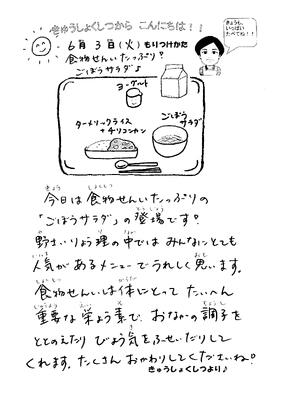 きゅうしょくしつから こんにちは！！
きょうも、
いっぱい
たべてね！！
6月3日(火) もりつけかた
食物せんいたっぷり？
ごぼうサラダ♪
ヨーグルト
ターメリックライス
+チリコンカン
ごぼう
サラダ
今日は食物せんいたっぷりの
「ごぼうサラダ」の登場です？
野さいりょう理の中では みんなにとても
人気があるメニューでうれしく思います。
食物せんいは体にとって たいへん
重要な栄よう素で、おなかの調子を
ととのえたり びょう気をふせいだりして
くれます。たくさん おかわりしてくださいね？
きゅうしょくしつより♪